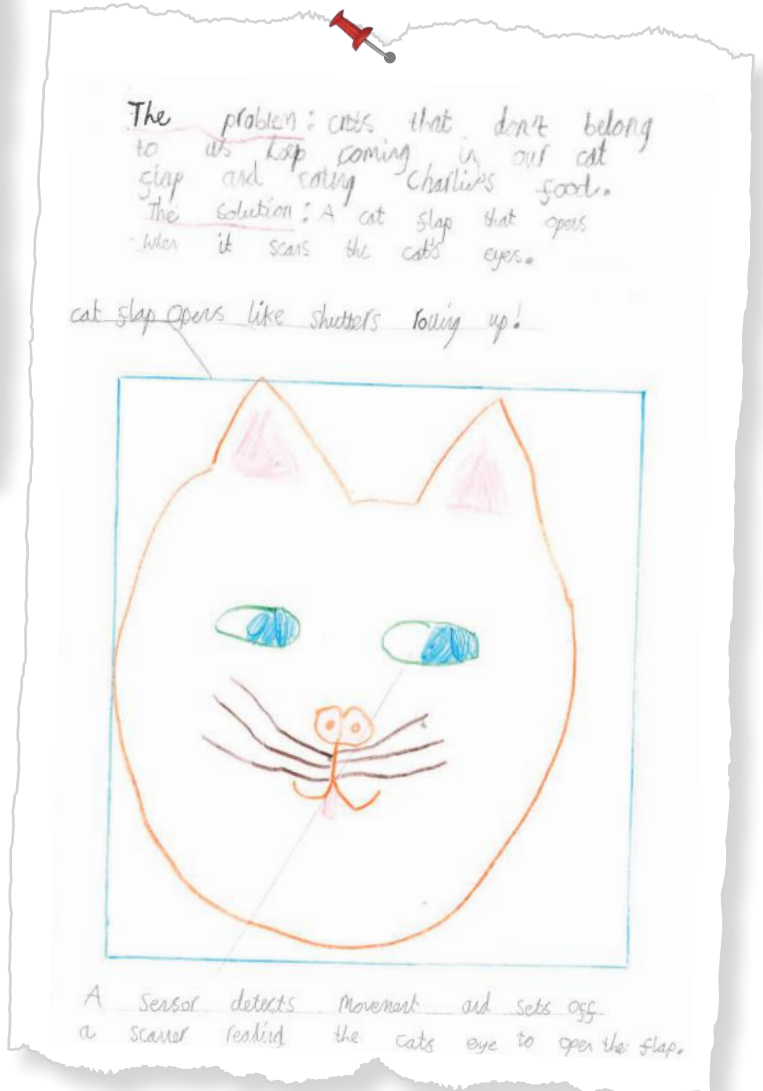 The problem: cats that don't belong
to us keep coming in our cat
flap and eating Charlie's food.
The solution: A cat flap that opens
when it scans the cat's eyes.
cat flap opens like shutters rolling up!
A sensor detects movement and sets off
a scanner reading the cats eye to open the flap.